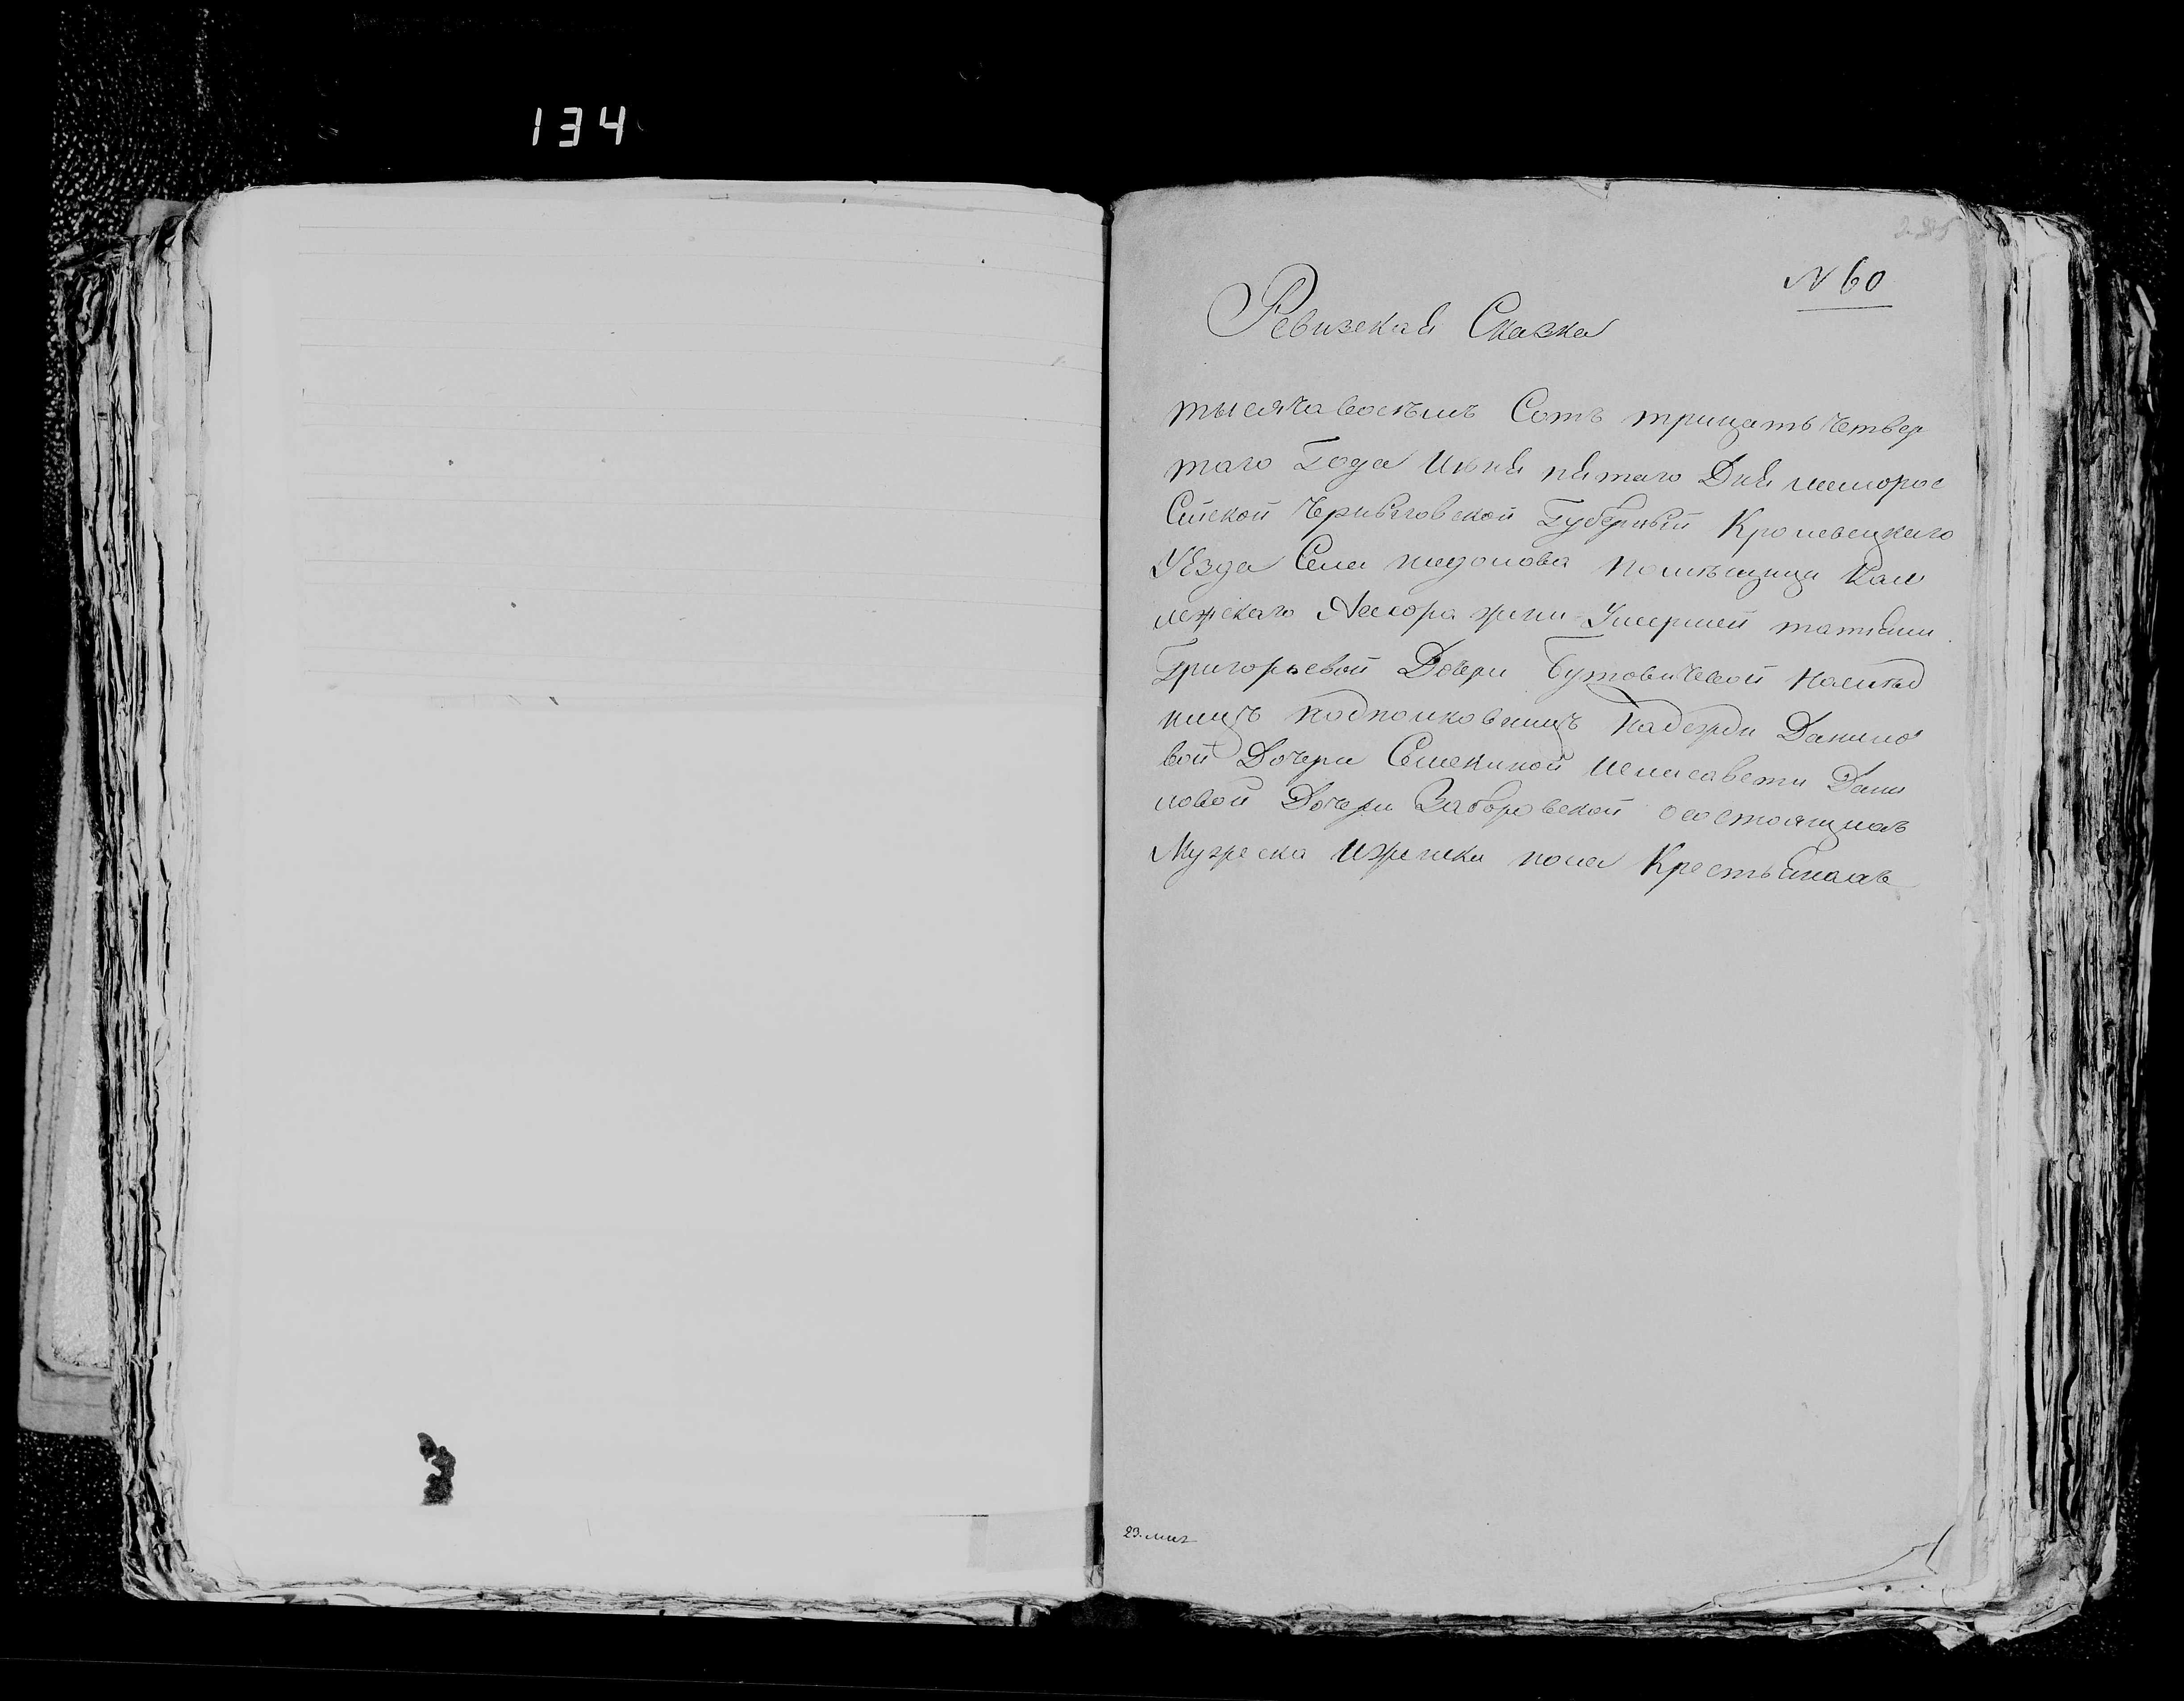 134
N 60
Ревизская Сказка
тысяча восемъ Сотъ трицать четвер
таго Года Июня пятаго Дня малорос
Сийской Черниговской Губерный Кролевецкаго
Уезда Села помѣщици Кал
лежскаго Асесора жени Умершей татяни
Григорьевой Дочери Бутовичевой наслед
ницъ подполковницъ надежди Данило
вой Дочери елисавети Дани
ловой Дочери Заборовской осостоящихъ
Мужеска Иженска пола Крестьянахъ